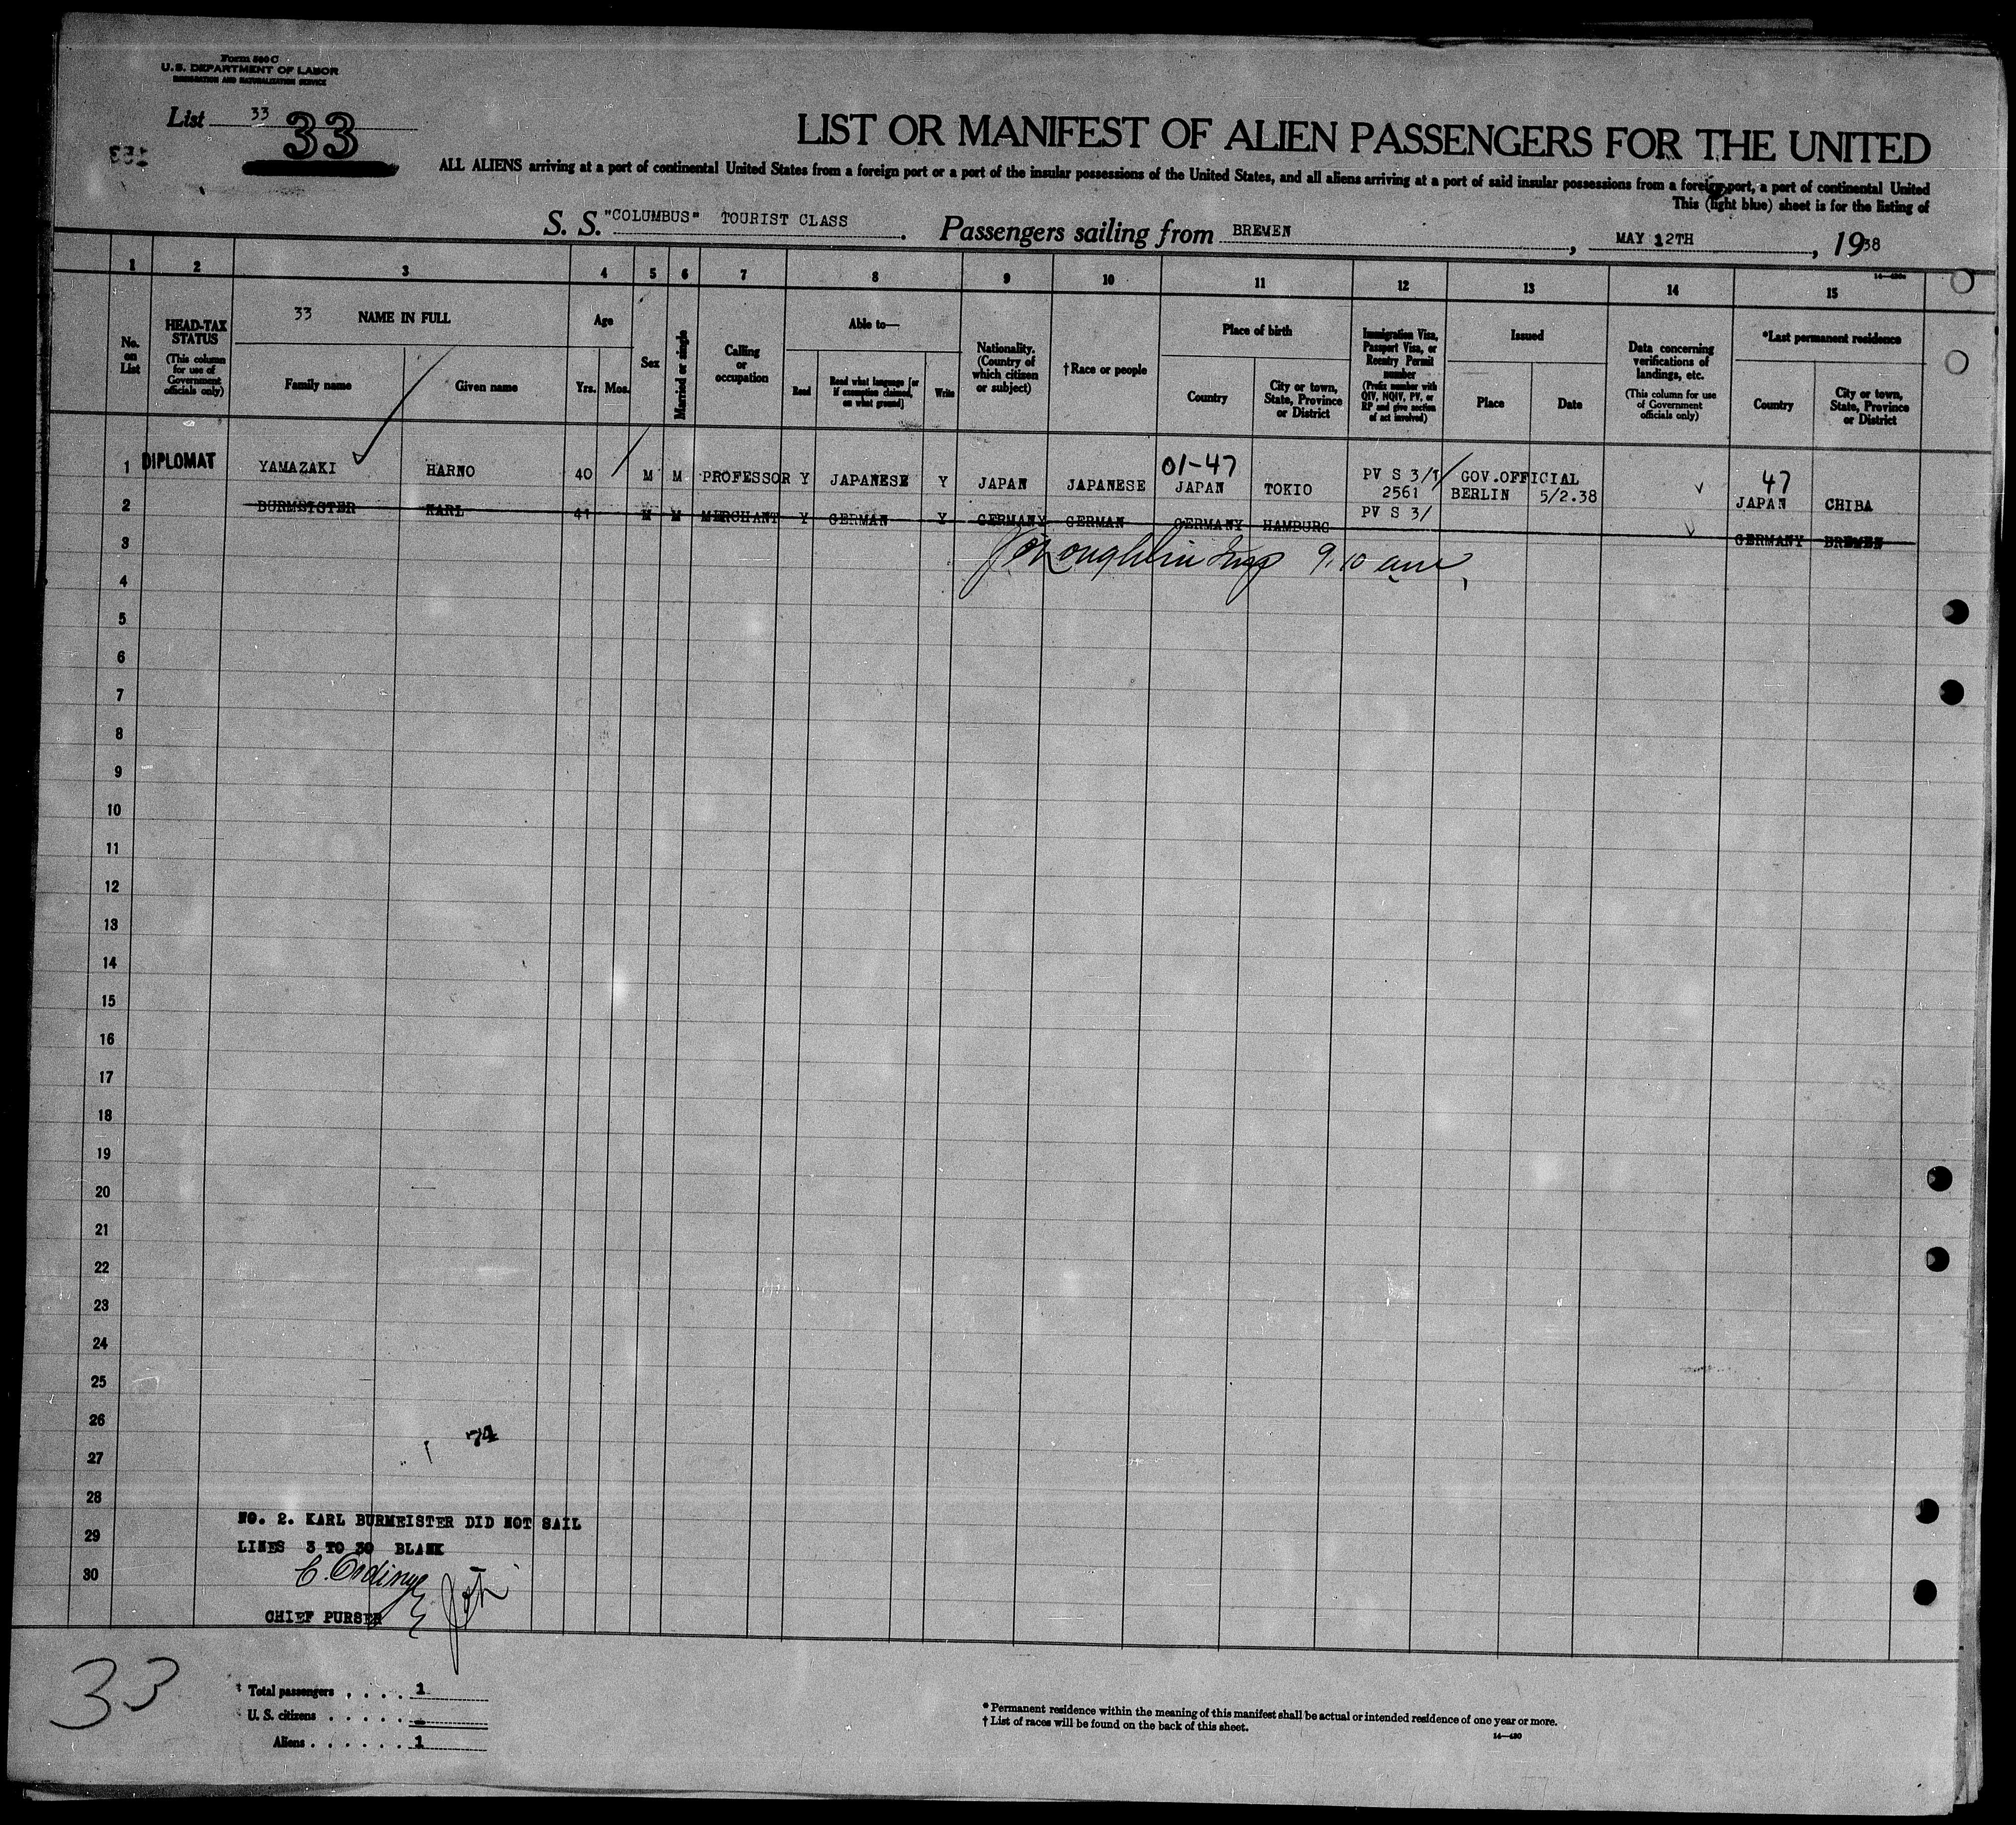 Form 500 C
U.S. DEPARTMENT OF LABOR
IMMIGRATION AND NATURALIZATION SERVICE
List 33
33
LIST OR MANIFEST OF ALIEN PASSENGERS FOR THE UNITED
ALL ALIENS arriving at a port of continental United States from a foreign port or a port of the insular possessions of the United States, and all aliens arriving at a port of said insular possessions from a foreign port, a port of continental United
This (light blue) sheet is for the listing of
S. S. "COLUMBUS" TOURIST CLASS . Passengers sailing from BREMEN , MAY 12TH , 1938
1 2 3 4 5 6 7 8 9 10 11 12 13 14 15
No. on List
HEAD-TAX STATUS
(This column for use of Government officials only)
33 NAME IN FULL
Family name
Given name
Age
Yrs. Mos.
Sex
Married or single
Calling or occupation
Able to—
Read
Read what language [or if exemption claimed, on what ground]
Write
Nationality. (Country of which citizen or subject)
†Race or people
Place of birth
Country
City or town, State, Province or District
Immigration Visa, Passport Visa, or Reentry Permit number
(Prefix number with QIV, NQIV, PV, or RP and give section of act involved)
Issued
Place
Date
Data concerning verifications of landings, etc.
(This column for use of Government officials only)
*Last permanent residence
Country
City or town, State, Province or District
01-47 47
1 DIPLOMAT YAMAZAKI HARNO 40 M M PROFESSOR Y JAPANESE Y JAPAN JAPANESE JAPAN TOKIO PV S 3/1 2561 GOV.OFFICIAL BERLIN 5/2.38 JAPAN CHIBA
2 BURMEISTER KARL 41 M M MERCHANT Y GERMAN Y GERMANY GERMAN GERMANY HAMBURG PV S 3/ GERMANY BREMEN
3
9.10 am
4
5
6
7
8
9
10
11
12
13
14
15
16
17
18
19
20
21
22
23
24
25
26
74
27
28
NO. 2. KARL BURMEISTER DID NOT SAIL
29
LINES 3 TO 30 BLANK
30
CHIEF PURSER
33
Total passengers . . . . 1
U. S. citizens . . . . . -
Aliens . . . . . . 1
* Permanent residence within the meaning of this manifest shall be actual or intended residence of one year or more.
† List of races will be found on the back of this sheet.
14—430